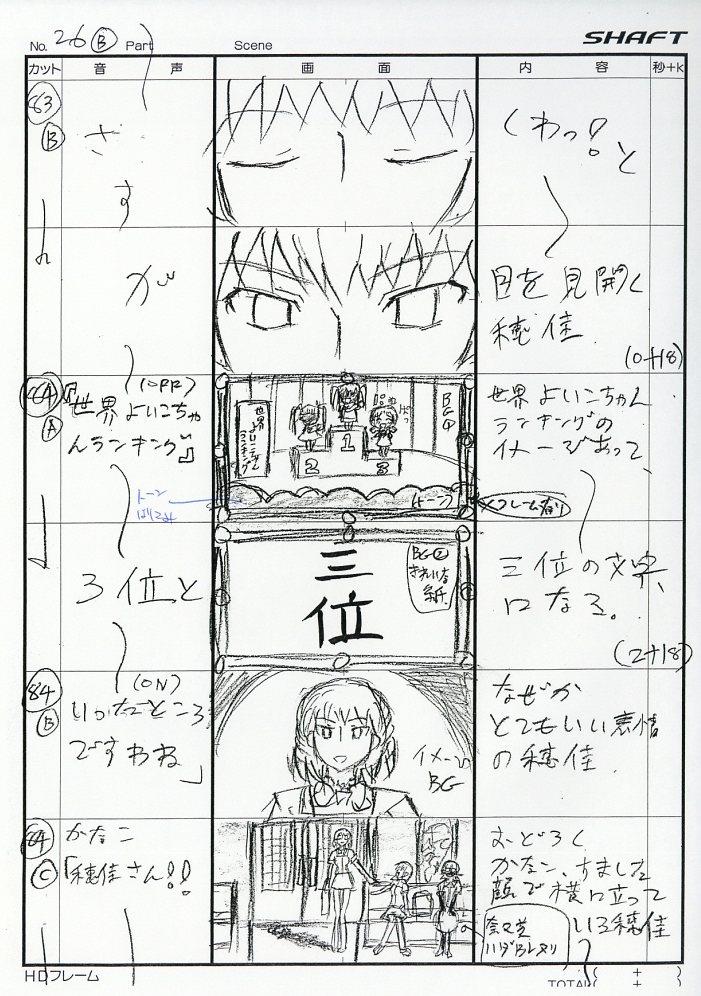 No. 26 Ⓑ Part
Scene
SHAFT
カット
音 声
画 面
内 容
秒+k
83
B
さ
す
が
くわっ!と
目を見開く
穂佳
(0+18)
84
A
(OFF)
『世界よいこちゃ
んランキング』
世界よいこちゃんランキング
1
2
3
BG
トーン
はりこみ
(トーン)
フレーム有り
世界よいこちゃん
ランキングの
イメージあって、
3位と
三
位
BG
きれいな
紙
三位の文字
になる。
(2+18)
84
B
(ON)
いったところ
ですわね」
イメージ
BG
なぜか
とてもいい表情
の穂佳
84
C
かなこ
「穂佳さん!!
おどろく
かなこ、すました
顔で横に立って
いる穂佳
HDフレーム
TOTAL( + )